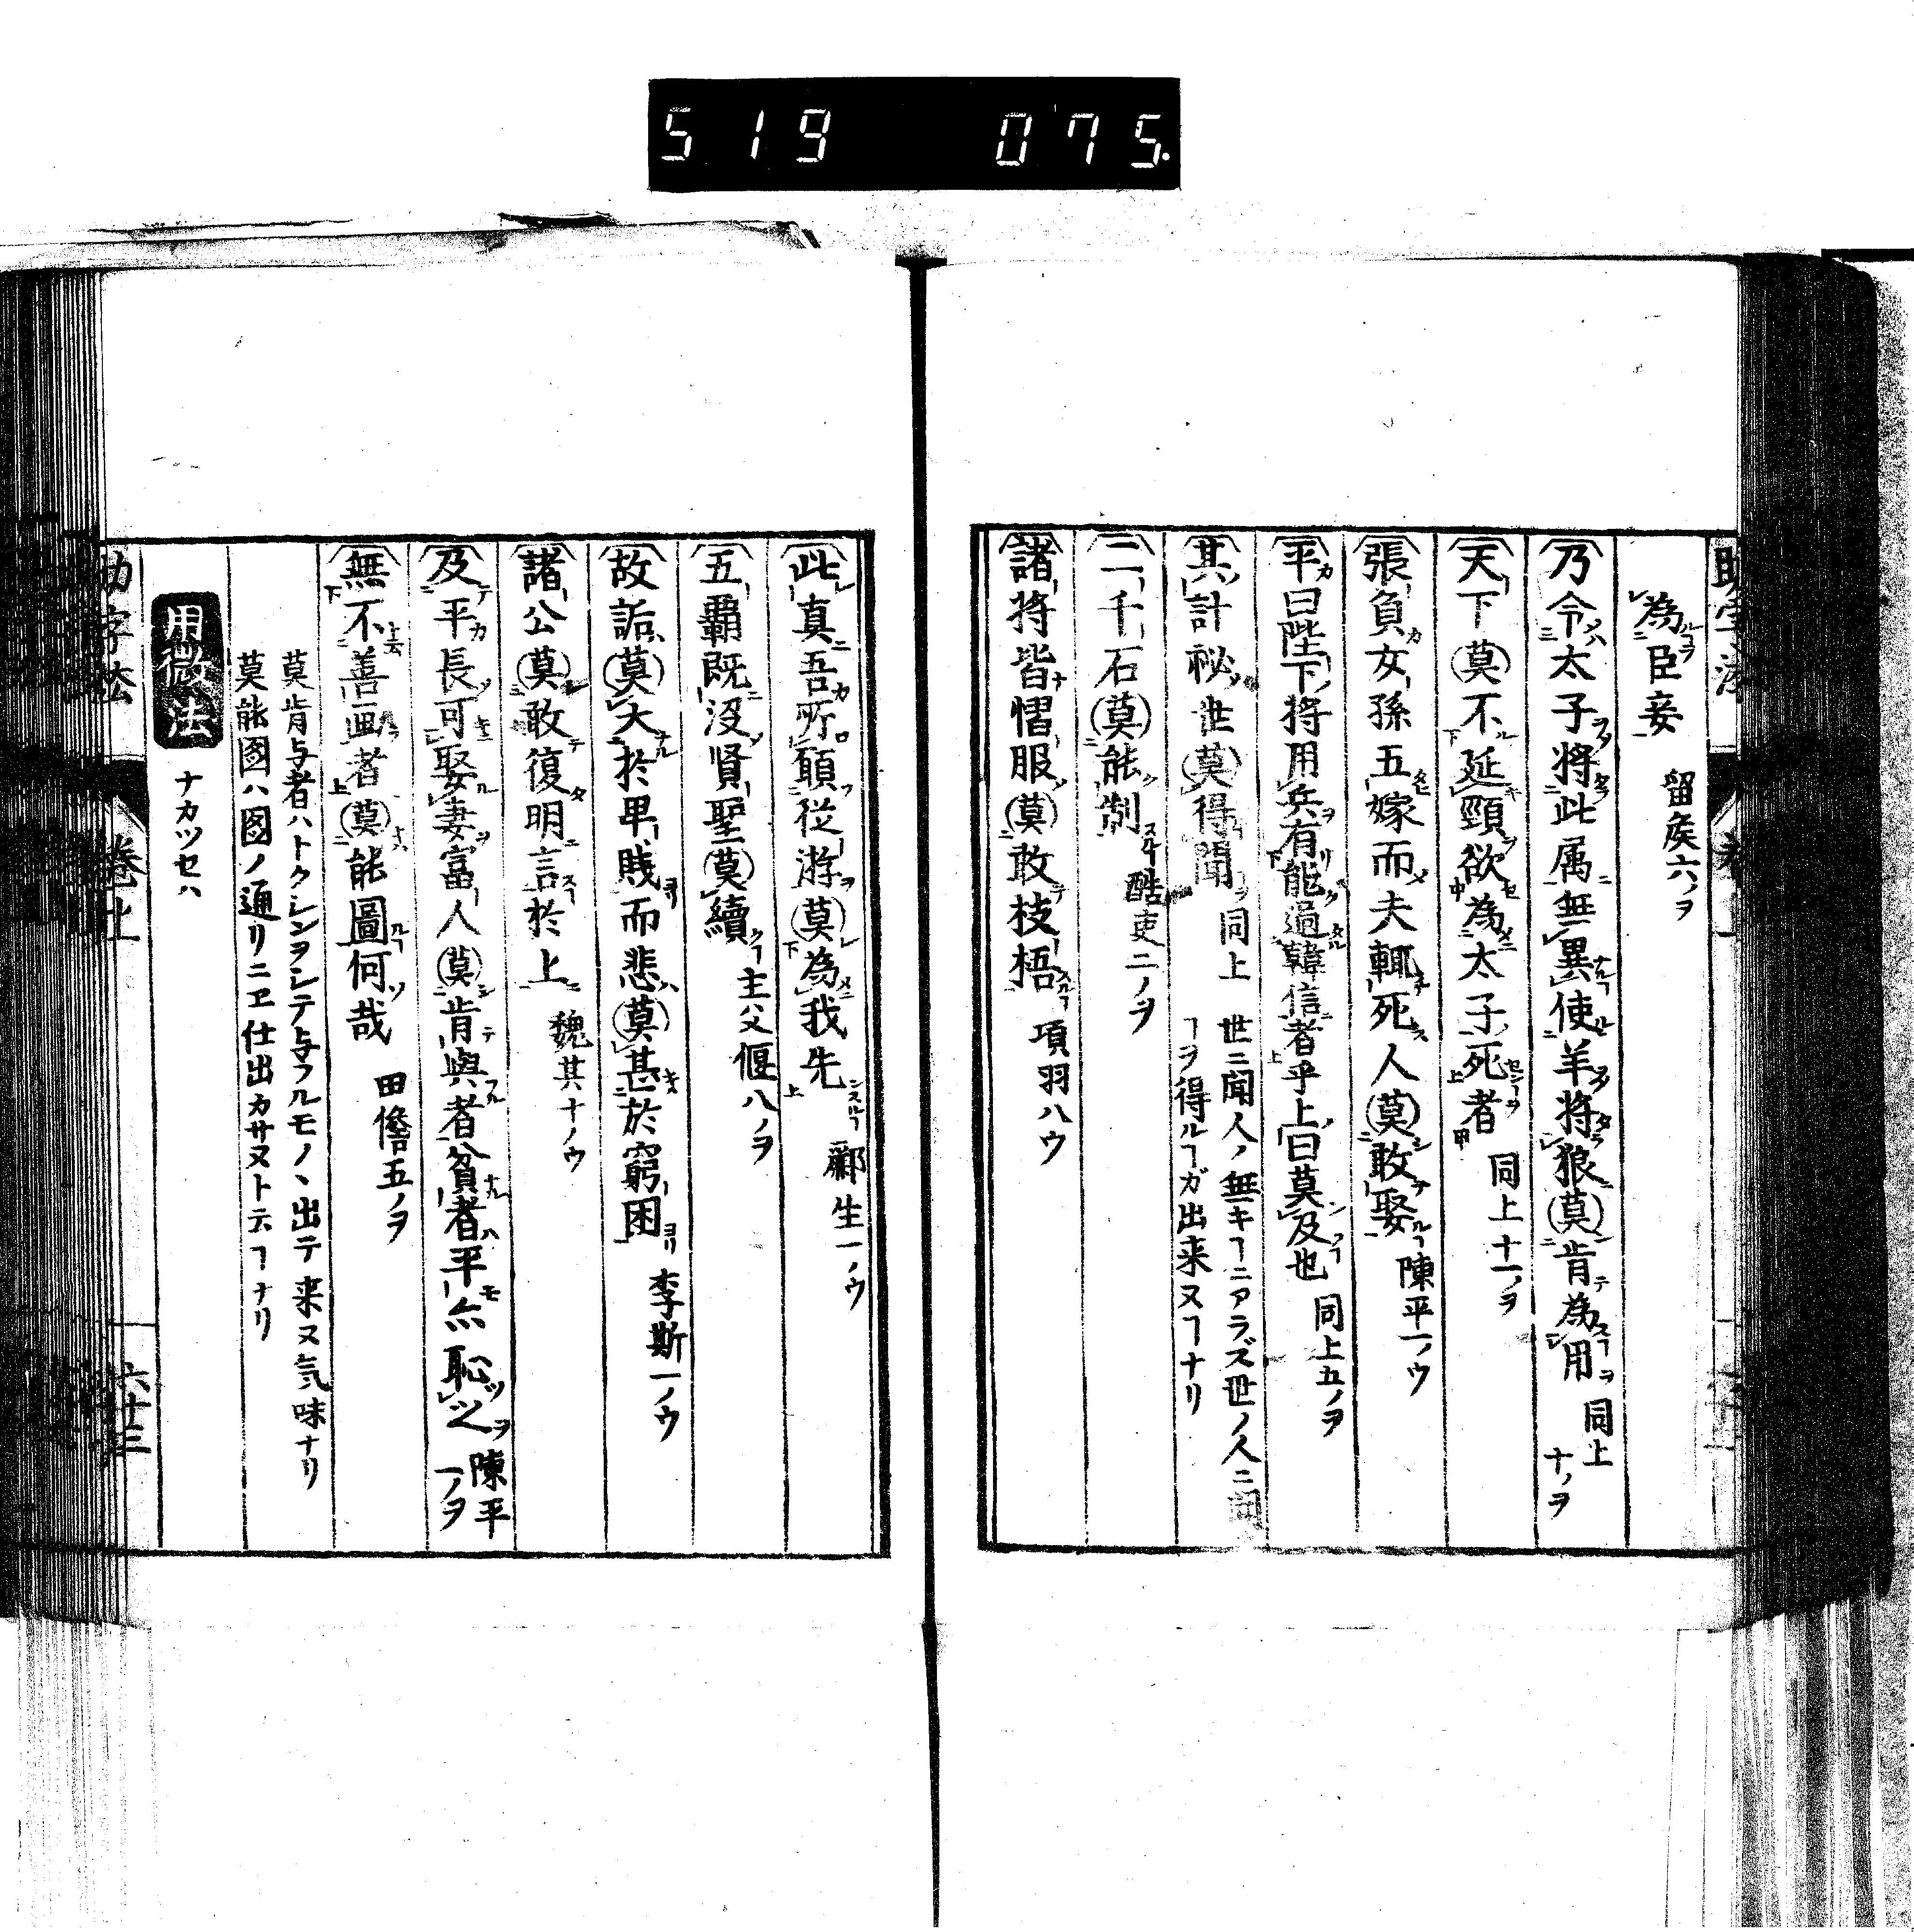 519 075.
為臣妾 留矦六ノヲ
乃令太子将此属無異使羊将狼莫肯為用 同上十ノヲ
天下莫不延頸欲為太子死者 同上十一ノヲ
張負女孫五嫁而夫輒死人莫敢娶 陳平一ノウ
平曰陛下将用兵有能過韓信者乎上曰莫及也 同上五ノヲ
其計祕世莫得聞 同上 世ニ聞人ノ無キヿニアラズ世ノ人ニ聞ヿヲ得ルヿガ出来ヌヿナリ
二千石莫能制 酷吏二ノヲ
諸将皆慴服莫敢枝梧 項羽八ウ
此真吾所願従游莫為我先 酈生一ノウ
五覇既没賢聖莫續 主父偃八ノヲ
故詬莫大於卑賎而悲莫甚於窮困 李斯一ノウ
諸公莫敢復明言於上 魏其十ノウ
及平長可娶妻富人莫肯與者貧者平亦恥之 陳平一ノヲ
無不善画者莫能圖何哉 田儋五ノヲ
莫肯与者ハトクシンヲシテ与フルモノヽ出テ来ヌ気味ナリ
莫能図ハ図ノ通リニヱ仕出カサヌト云ヿナリ
用微法 ナカツセハ
助字法 巻上 六十三